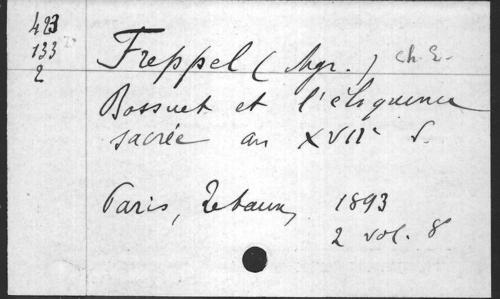 423
133
2
Freppel (Mgr.) Ch. E.
Bossuet et l'éloquence
sacrée au XVIIe s.
Paris, Retaux, 1893
2 vol. 8°